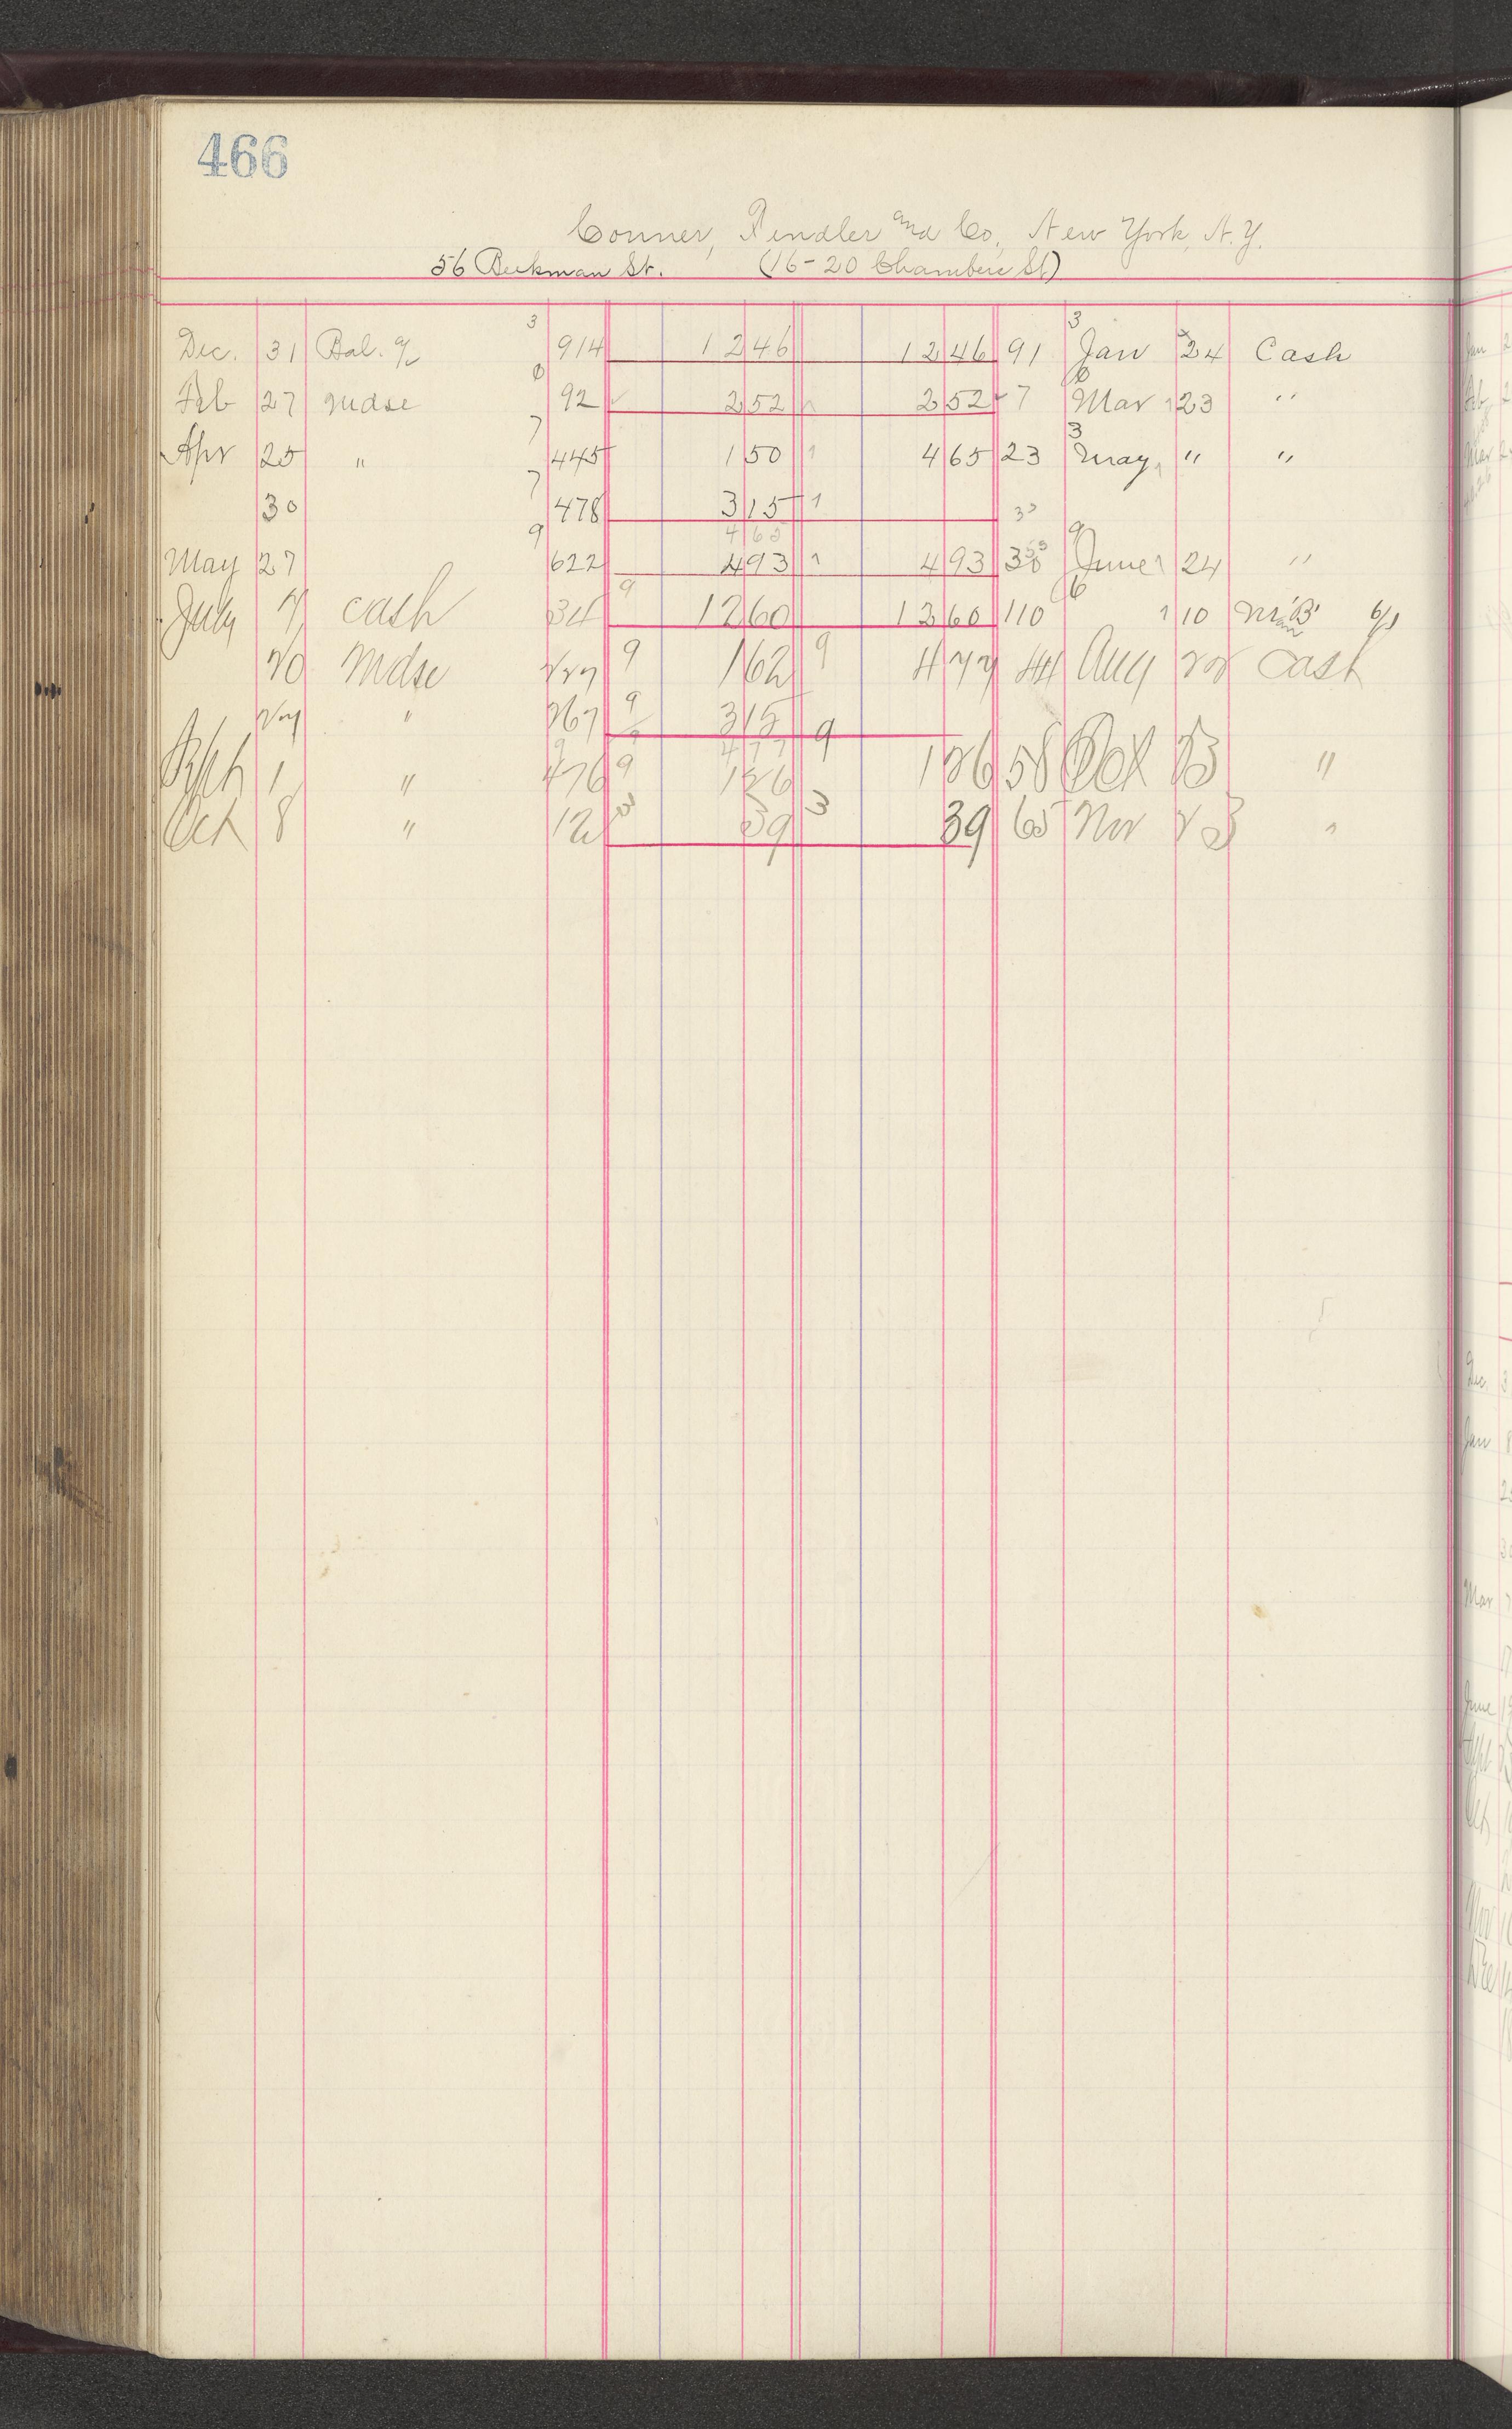 466
Conner, Fendler and Co, New York, N.Y.
56 Beekman St. (16-20 Chambers St)
Dec. 31 Bal. 3 914 1246 1246 91 3 Jan 24 Cash
Feb 27 Mdse 6 92 252 252 7 6 Mar 23 "
Apr 25 " 7 445 150 465 23 3 May " "
30 7 478 315
465
May 27 9 622 493 493 38 9 June 24 "
July 7 Cash 34 9 1260 1260 110 6 10
20 Mdse 227 9 162 9 477 44 Aug 22 Cash
27 " 267 9 315
477
Sept 1 " 476 9 126 9 126 58 Oct 23 "
Oct 8 " 12 3 39 3 39 65 Nov 23 "